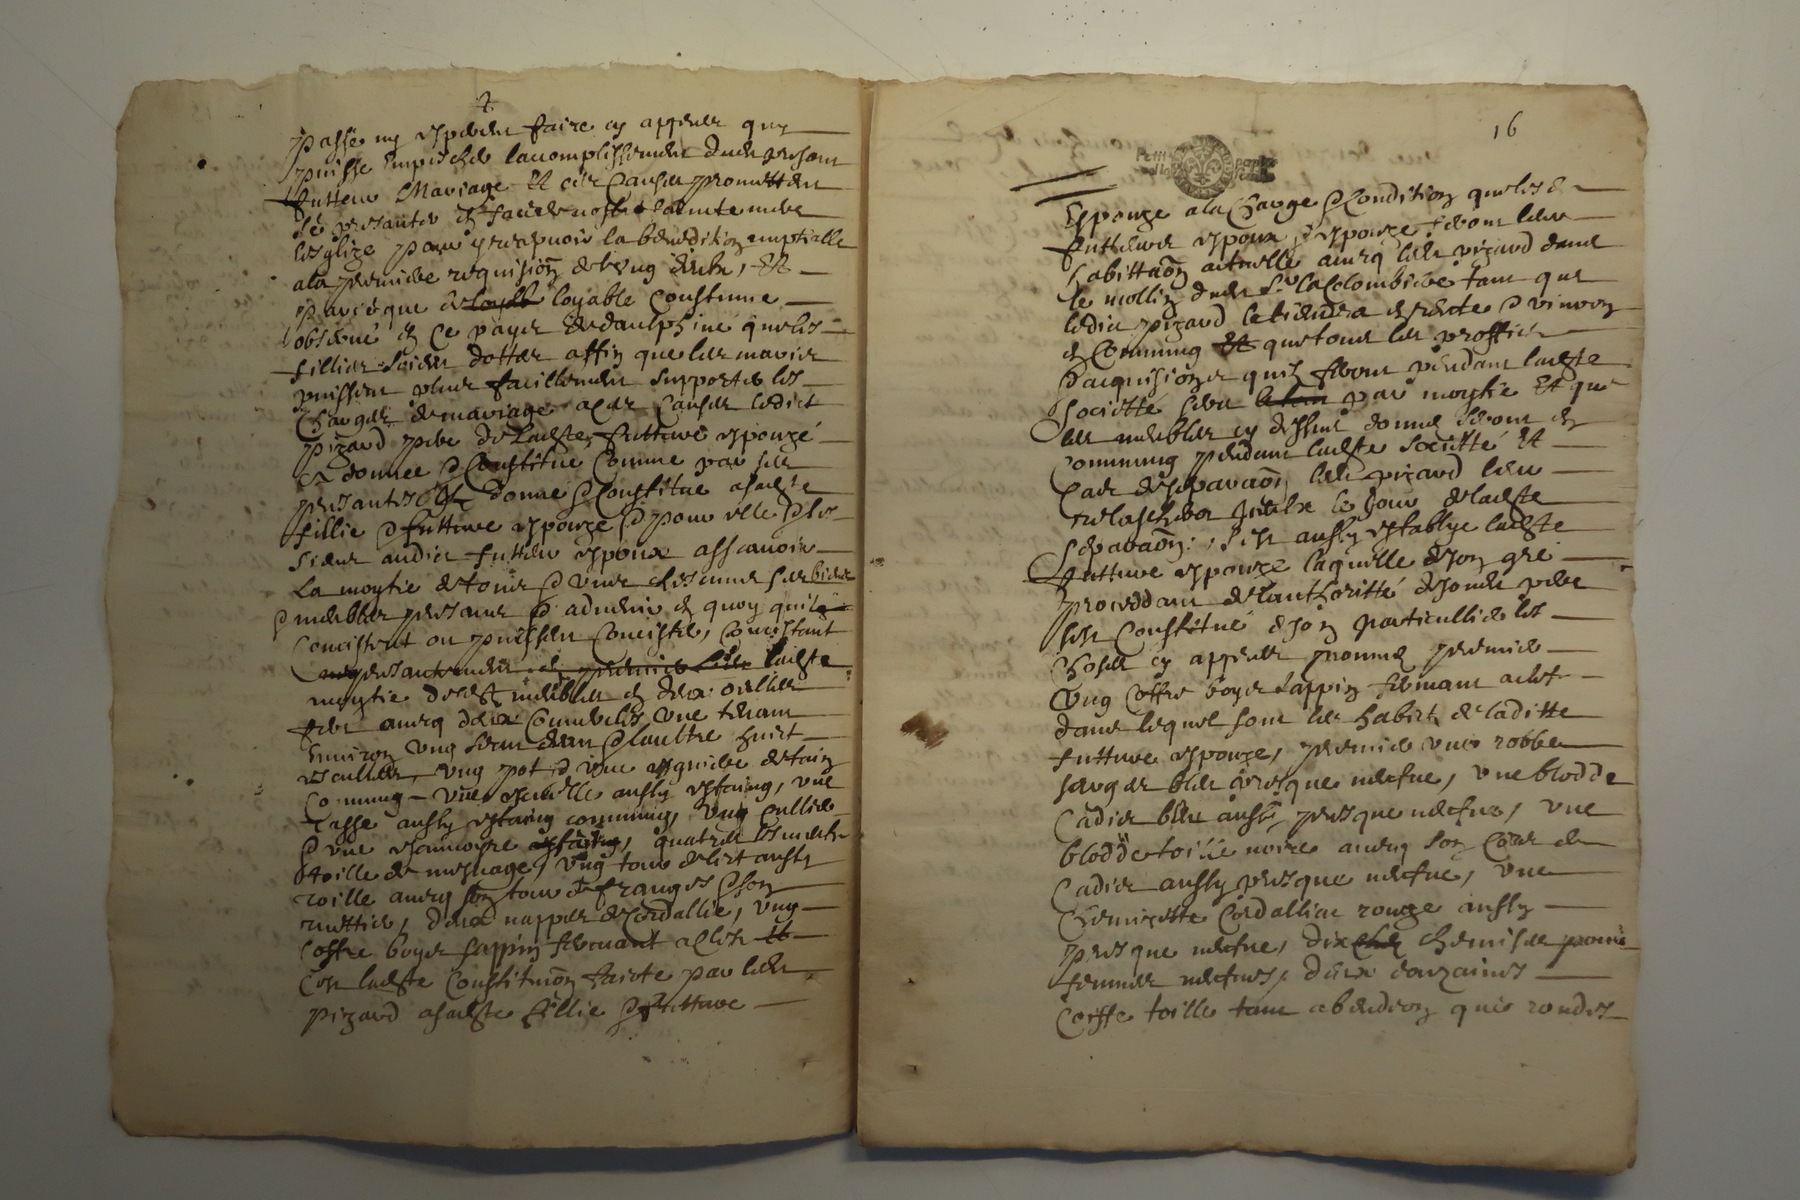 passé ny espere faire cy apprès que
puisse empescher l'accomplissement dudit present
futteur Mariage Et ces causes promettent
se presanter en face de nostre saincte mere
lesglize pour y recepvoir la benediction nuptialle
a la premiere requisiōn de lung deulx, Et
parce que de loyable Coustume
observé en ce pays de daulphiné que les
fillies soient dottées affin que les maries
puissent plus facillement supporter les
Charges de mariage a ces causes ledict
pizard pere de ladte future espouze
a donné & Constitué Comme par ces
presantes donne & Constitue a sadte
fillie & future espouze & pour elle & les
siens audict futteur espoux assavoir
La moytié de tous & uns chescuns ses biens
& meubles presans & advenir en quoy quilz
Concistent ou puissent Concister, Concistant
presantement ladte
moytié desdts meubles en deux oulles
fer aveq deux Couvercles une tenant
environ ung seau deau & laultre huict
escuelles, ung pot & une esguiere destaing
Commung une escuelle aussy estaing, une
tasse aussy estaing commung, ung cullier
& une, quatre lesmeche
toille de mesnage, ung tour de lict aussy
toille aveq son tour de franges & son
, deux nappes de Cordallie, ung
Coffre boys sappin fermant a clefz
Cest ladte Constituōn faicte par ledit
pizard a sadte fillie & future
16
Petit papier
Espouze a la Charge & Condition que lesdits
futteurs espoux & espouze feront leur
habittaōn actuelle aveq ledit pizard dans
le mollin dudit Sr La Colombiere tant que
ledict pizard le tiendra en rente & vivront
en Commung que tous les proffits
d'acquisizions quilz feront pendant ladte
societte sera par moytié Et que
les meubles cy dessus donnés seront en
commung pendant ladte societte Et
Cas de separaōn ledit pizard leur
relaschera le Jour de ladte
separaōn: sest aussy establye ladte
future espouze laquelle de son gré
proceddant de lauthoritté de sondit pere
sest Constitué de son particullier les
Choses cy apprès promier premier
Ung Coffre boys sappin fermant a clef
dans lequel sont les habits de laditte
future espouze, premier une robbe
sarge bleu presque nefve, une blodde
Cadis bleu aussy presque nefve, une
blodde toille noire aveq son Cors de
Cadis aussy presque nefve, une
Chemizette Cordalliat rouge aussy
presque nefve, dix chemises
femme nefves, deux douzaines
Coiffe toille tant a bendron que rondes